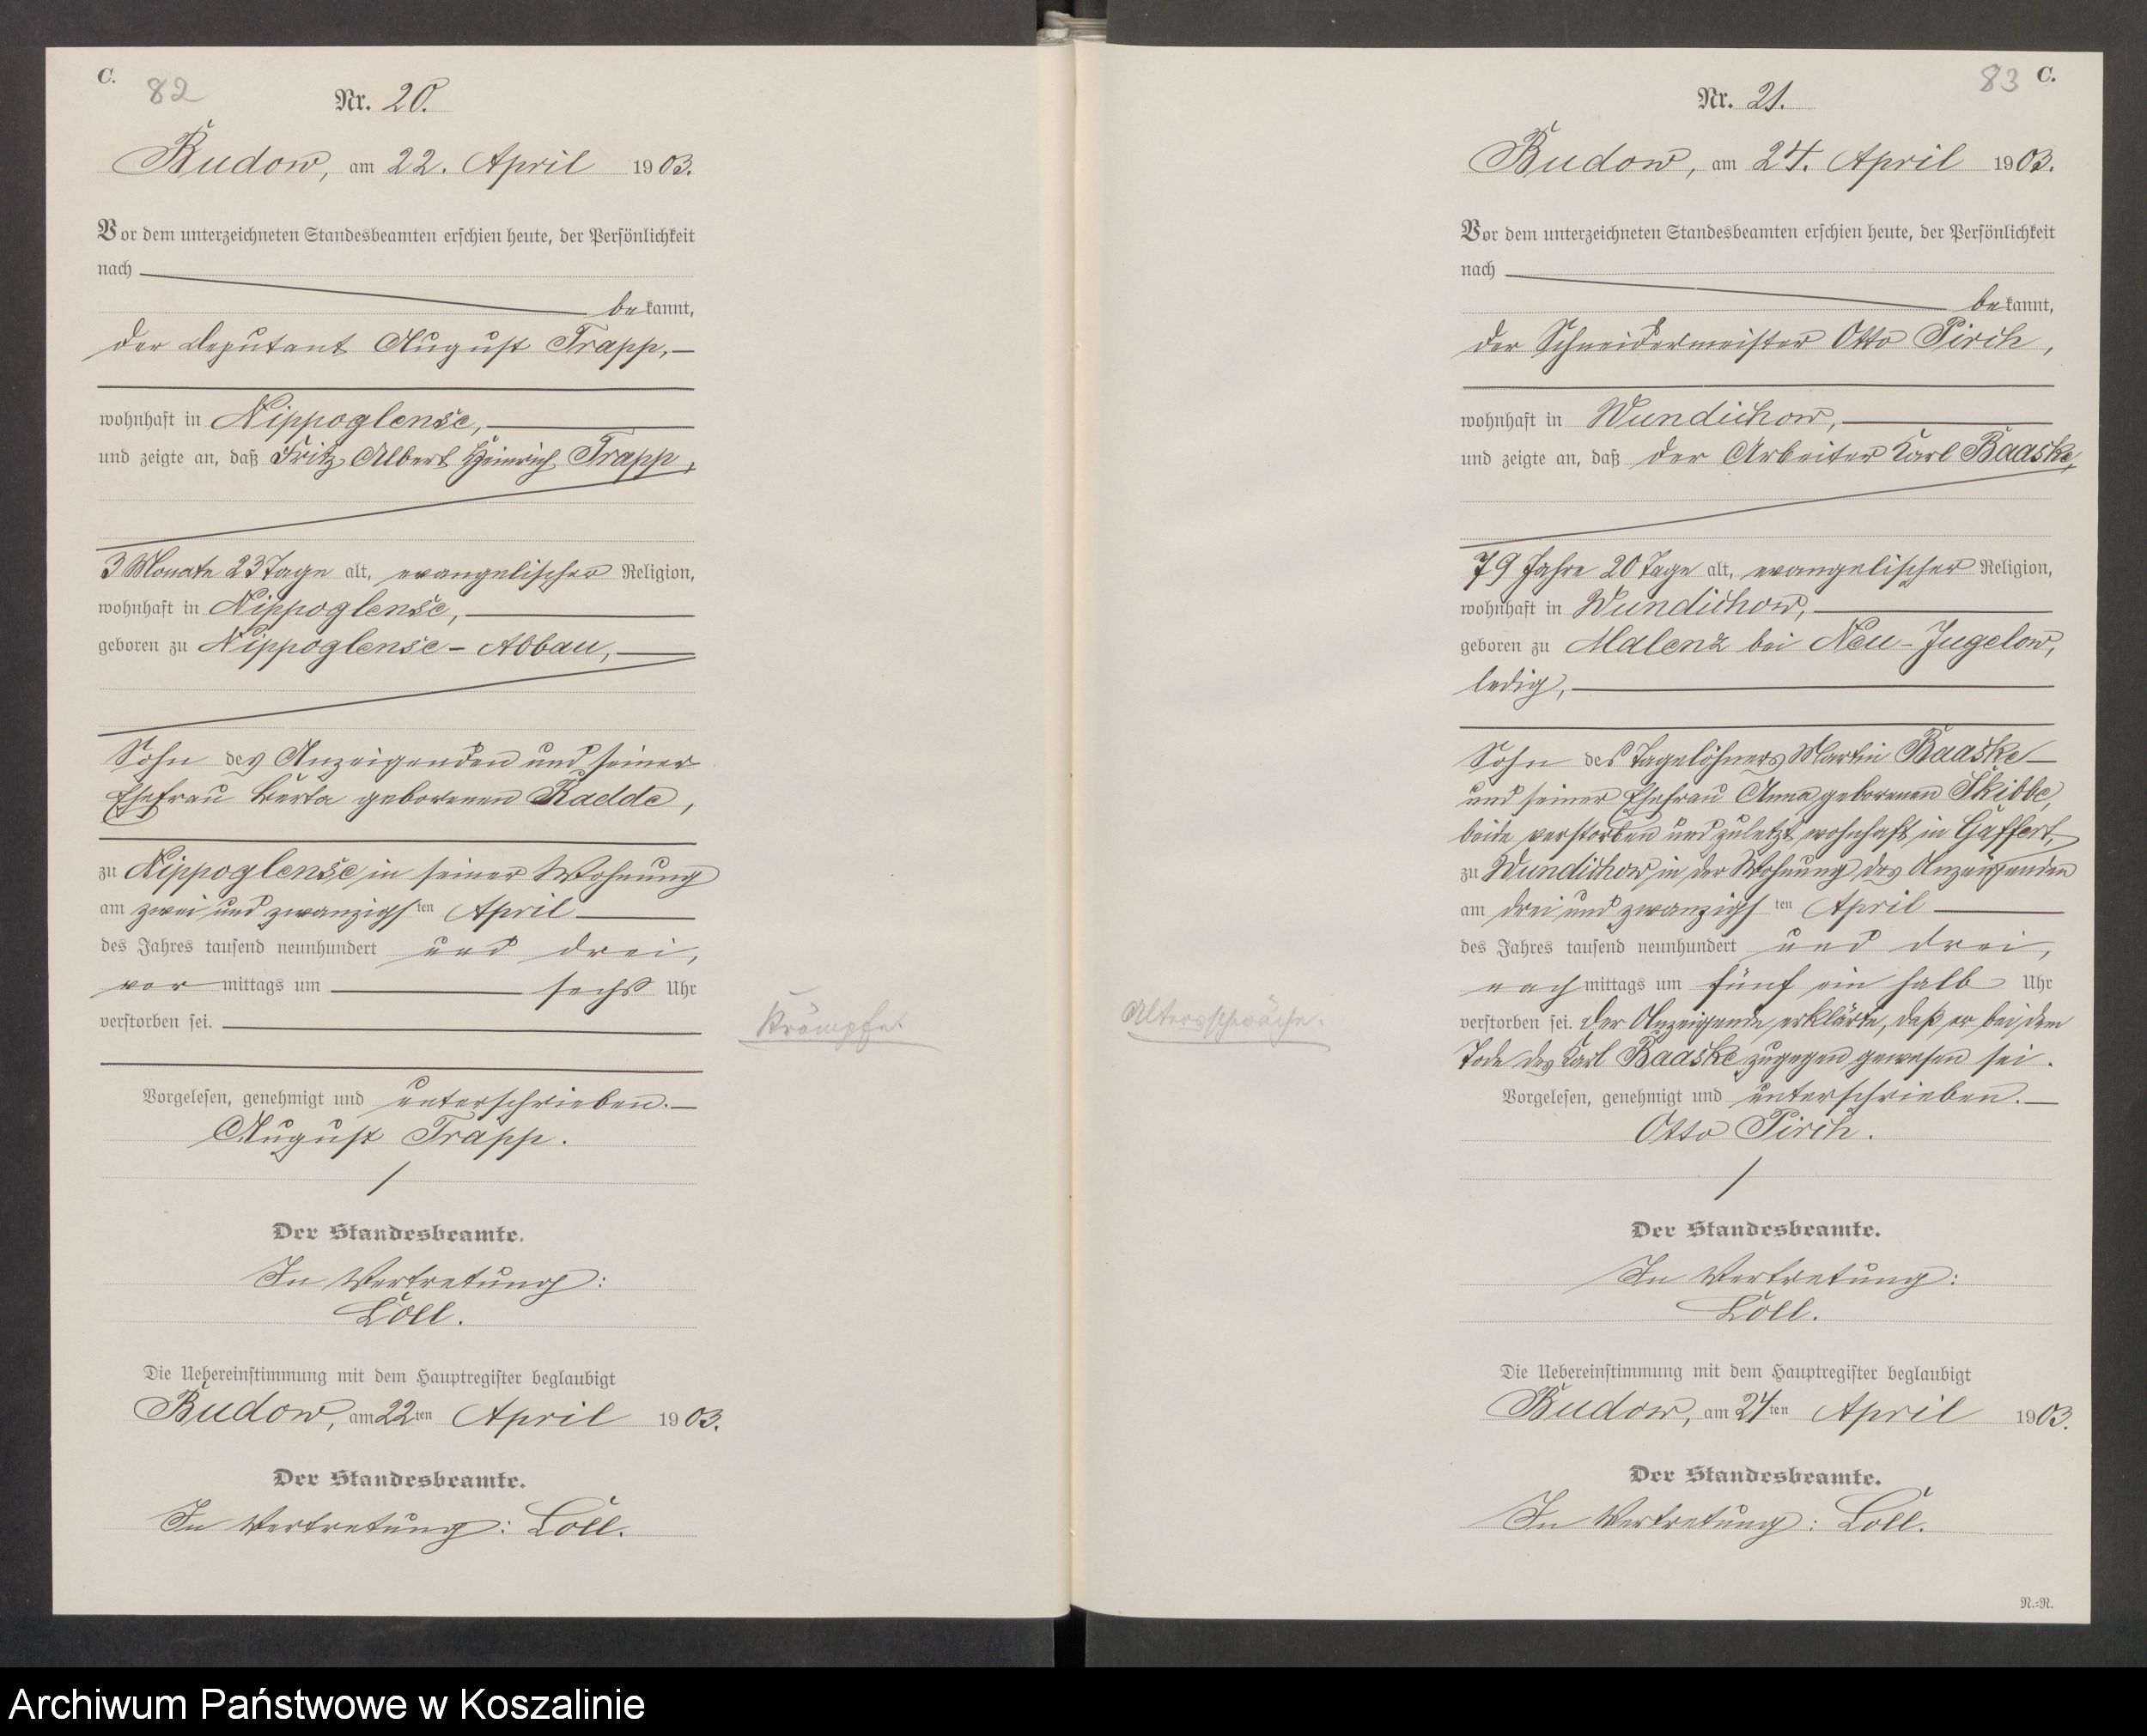 C.
82
Nr. 20.
Budow, am 22. April 1903.
Vor dem unterzeichneten Standesbeamten erschien heute, der Persönlichkeit
nach
bekannt,
der Deputant August Trapp,
wohnhaft in Nippoglense,
und zeigte an, daß Fritz Albert Heinrich Trapp,
3 Monate 23 Tage alt, evangelischer Religion,
wohnhaft in Nippoglense,
geboren zu Nippoglense-Abbau,
Sohn des Anzeigenden und seiner
Ehefrau Berta geborenen Radde,
zu Nippoglense in seiner Wohnung
am zwei und zwanzigsten April
des Jahres tausend neunhundert und drei,
vormittags um sechs Uhr
verstorben sei.
Krämpfe.
Vorgelesen, genehmigt und unterschrieben.
August Trapp.
Der Standesbeamte.
In Vertretung:
Löll.
Die Uebereinstimmung mit dem Hauptregister beglaubigt
Budow, am 22ten April 1903.
Der Standesbeamte.
In Vertretung: Löll.
83 C.
Nr. 21.
Budow, am 24. April 1903.
Vor dem unterzeichneten Standesbeamten erschien heute, der Persönlichkeit
nach
bekannt,
der Schneidermeister Otto Pirch,
wohnhaft in Wundichow,
und zeigte an, daß der Arbeiter Karl Baaske,
79 Jahre 20 Tage alt, evangelischer Religion,
wohnhaft in Wundichow,
geboren zu Malenz bei Neu-Jugelow,
ledig,
Sohn des Tagelöhners Martin Baaske
und seiner Ehefrau Anna geborenen Skibbe,
beide verstorben und zuletzt wohnhaft in Gaffert,
zu Wundichow in der Wohnung des Anzeigenden
am drei und zwanzigsten April
des Jahres tausend neunhundert und drei,
nachmittags um fünf ein halb Uhr
verstorben sei. Der Anzeigende erklärte, daß er bei dem
Tode des Karl Baaske zugegen gewesen sei.
Altersschwäche.
Vorgelesen, genehmigt und unterschrieben.
Otto Pirch.
Der Standesbeamte.
In Vertretung:
Löll.
Die Uebereinstimmung mit dem Hauptregister beglaubigt
Budow, am 24ten April 1903.
Der Standesbeamte.
In Vertretung: Löll.
N.-N.
Archiwum Państwowe w Koszalinie